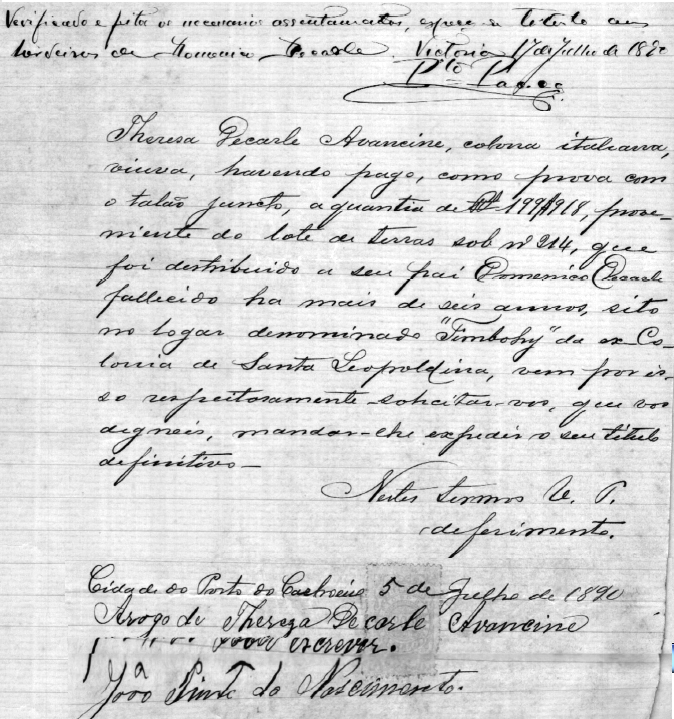 Verificado e feita os necessarios assentamentos, expeça-se titulo aos
herdeiros de Decarle Victoria 17 de Julho de 1890
Theresa Decarle Avancine, colona italiana,
viuva, havendo pago, como prova com
o talão juncto, a quantia de 199$218, prove-
niente do lote de terras sob nº 214, que
foi destribuido a seu pai Domenico Decarle
fallecido ha mais de seis annos, sito
no logar denominado "Timbohy" da ex-Co-
lonia de Santa Leopoldina, vem por is-
so respeitosamente solicitar-vos, que vos
digneis, mandar-lhe expedir o seu titulo
definitivo—
Nestes termos
deferimento.
Cidade do Porto do Cachoeiro 5 de Julho de 1890
Arogo de Thereza Decarle Avancine
escrever.
João Pinto do Nascimento.